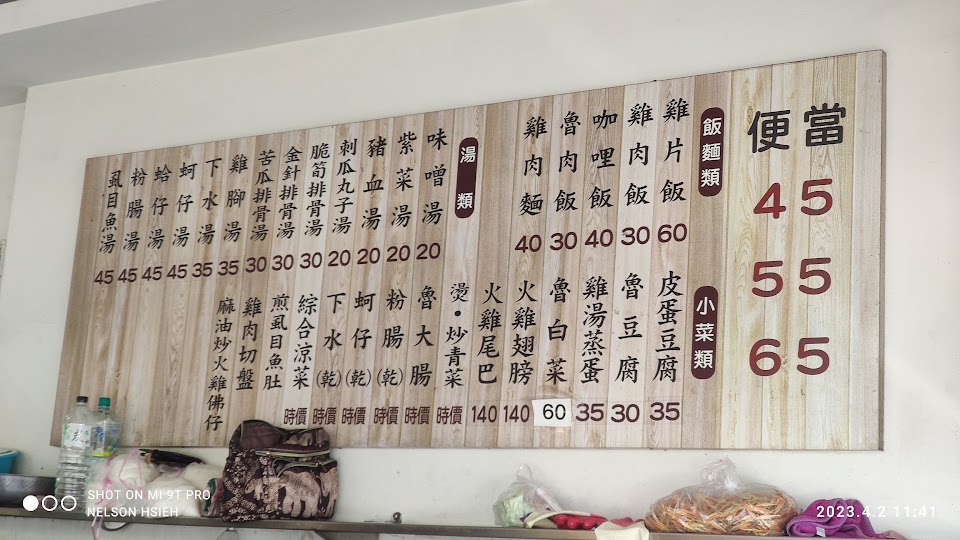 便當
45
55
65
飯麵類
雞片飯 60
雞肉飯 30
咖哩飯 40
魯肉飯 30
雞肉麵 40
湯類
味噌湯 20
紫菜湯 20
豬血湯 20
刺瓜丸子湯 20
脆筍排骨湯 30
金針排骨湯 30
苦瓜排骨湯 30
雞腳湯 35
下水湯 35
蚵仔湯 45
蛤仔湯 45
粉腸湯 45
虱目魚湯 45
小菜類
皮蛋豆腐 35
魯豆腐 30
雞湯蒸蛋 35
魯白菜 60
火雞翅膀 140
火雞尾巴 140
燙・炒青菜 時價
魯大腸 時價
粉腸(乾) 時價
蚵仔(乾) 時價
下水(乾) 時價
綜合涼菜 時價
煎虱目魚肚
雞肉切盤
麻油炒火雞佛仔
SHOT ON MI 9T PRO
NELSON HSIEH
2023.4.2 11:41